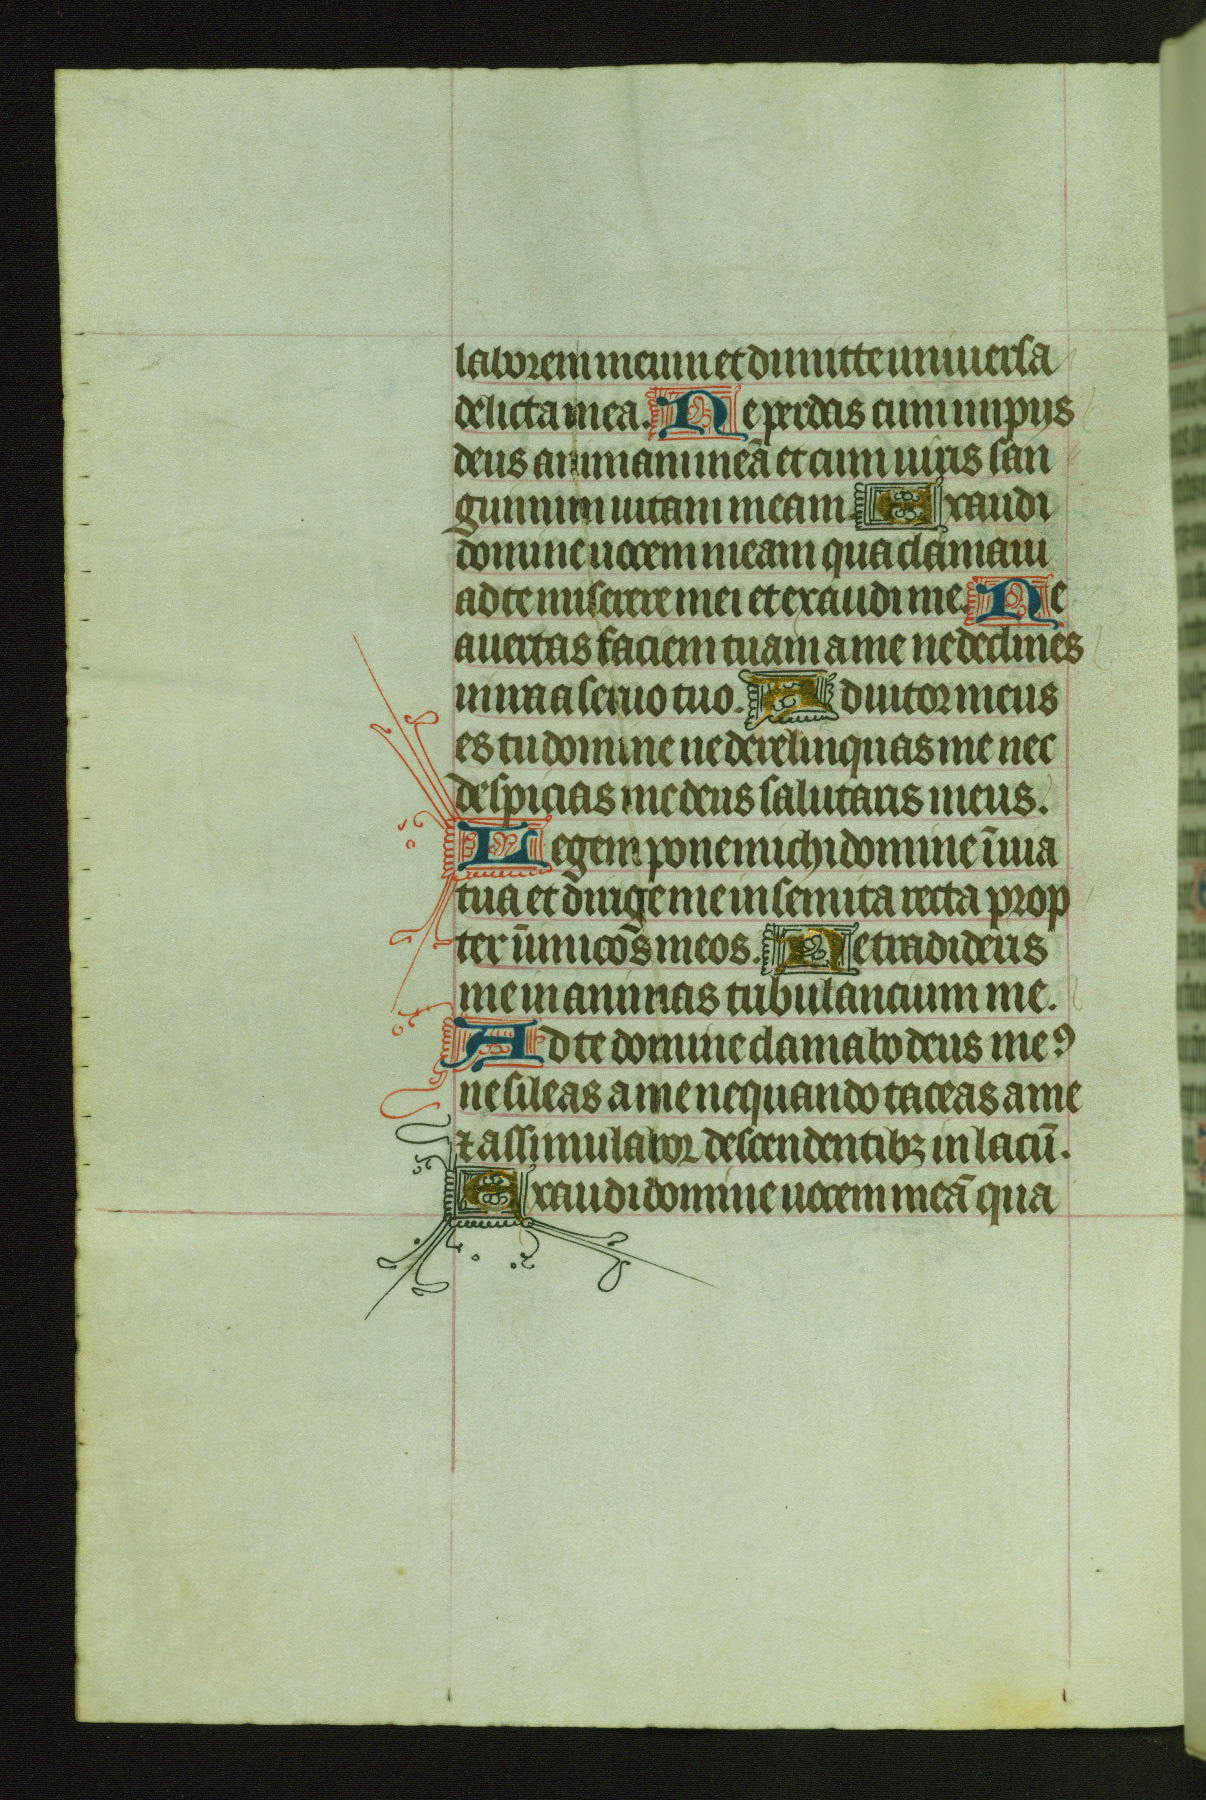 laborem meum et dimitte universa
delicta mea. Ne perdas cum impijs
deus animam meā et cum uiris san
guinum uitam meam. Exaudi
domine uocem meam qua clamaui
ad te miserere mei et exaudi me. Ne
auertas faciem tuam a me ne declines
in ira a seruo tuo. Adiutor meus
es tu domine ne derelinquas me nec
despicias me deus salutaris meus.
Legem pone michi domine ī uia
tua et dirige me in semita recta prop
ter īimicōs meos. Ne tradideris
me in animas tribulancium me.
Ad te domine clamabo deus meꝰ
ne sileas a me nequando taceas a me
⁊ assimulabor descendentibꝫ in lacū.
Exaudi domine uocem meā qua